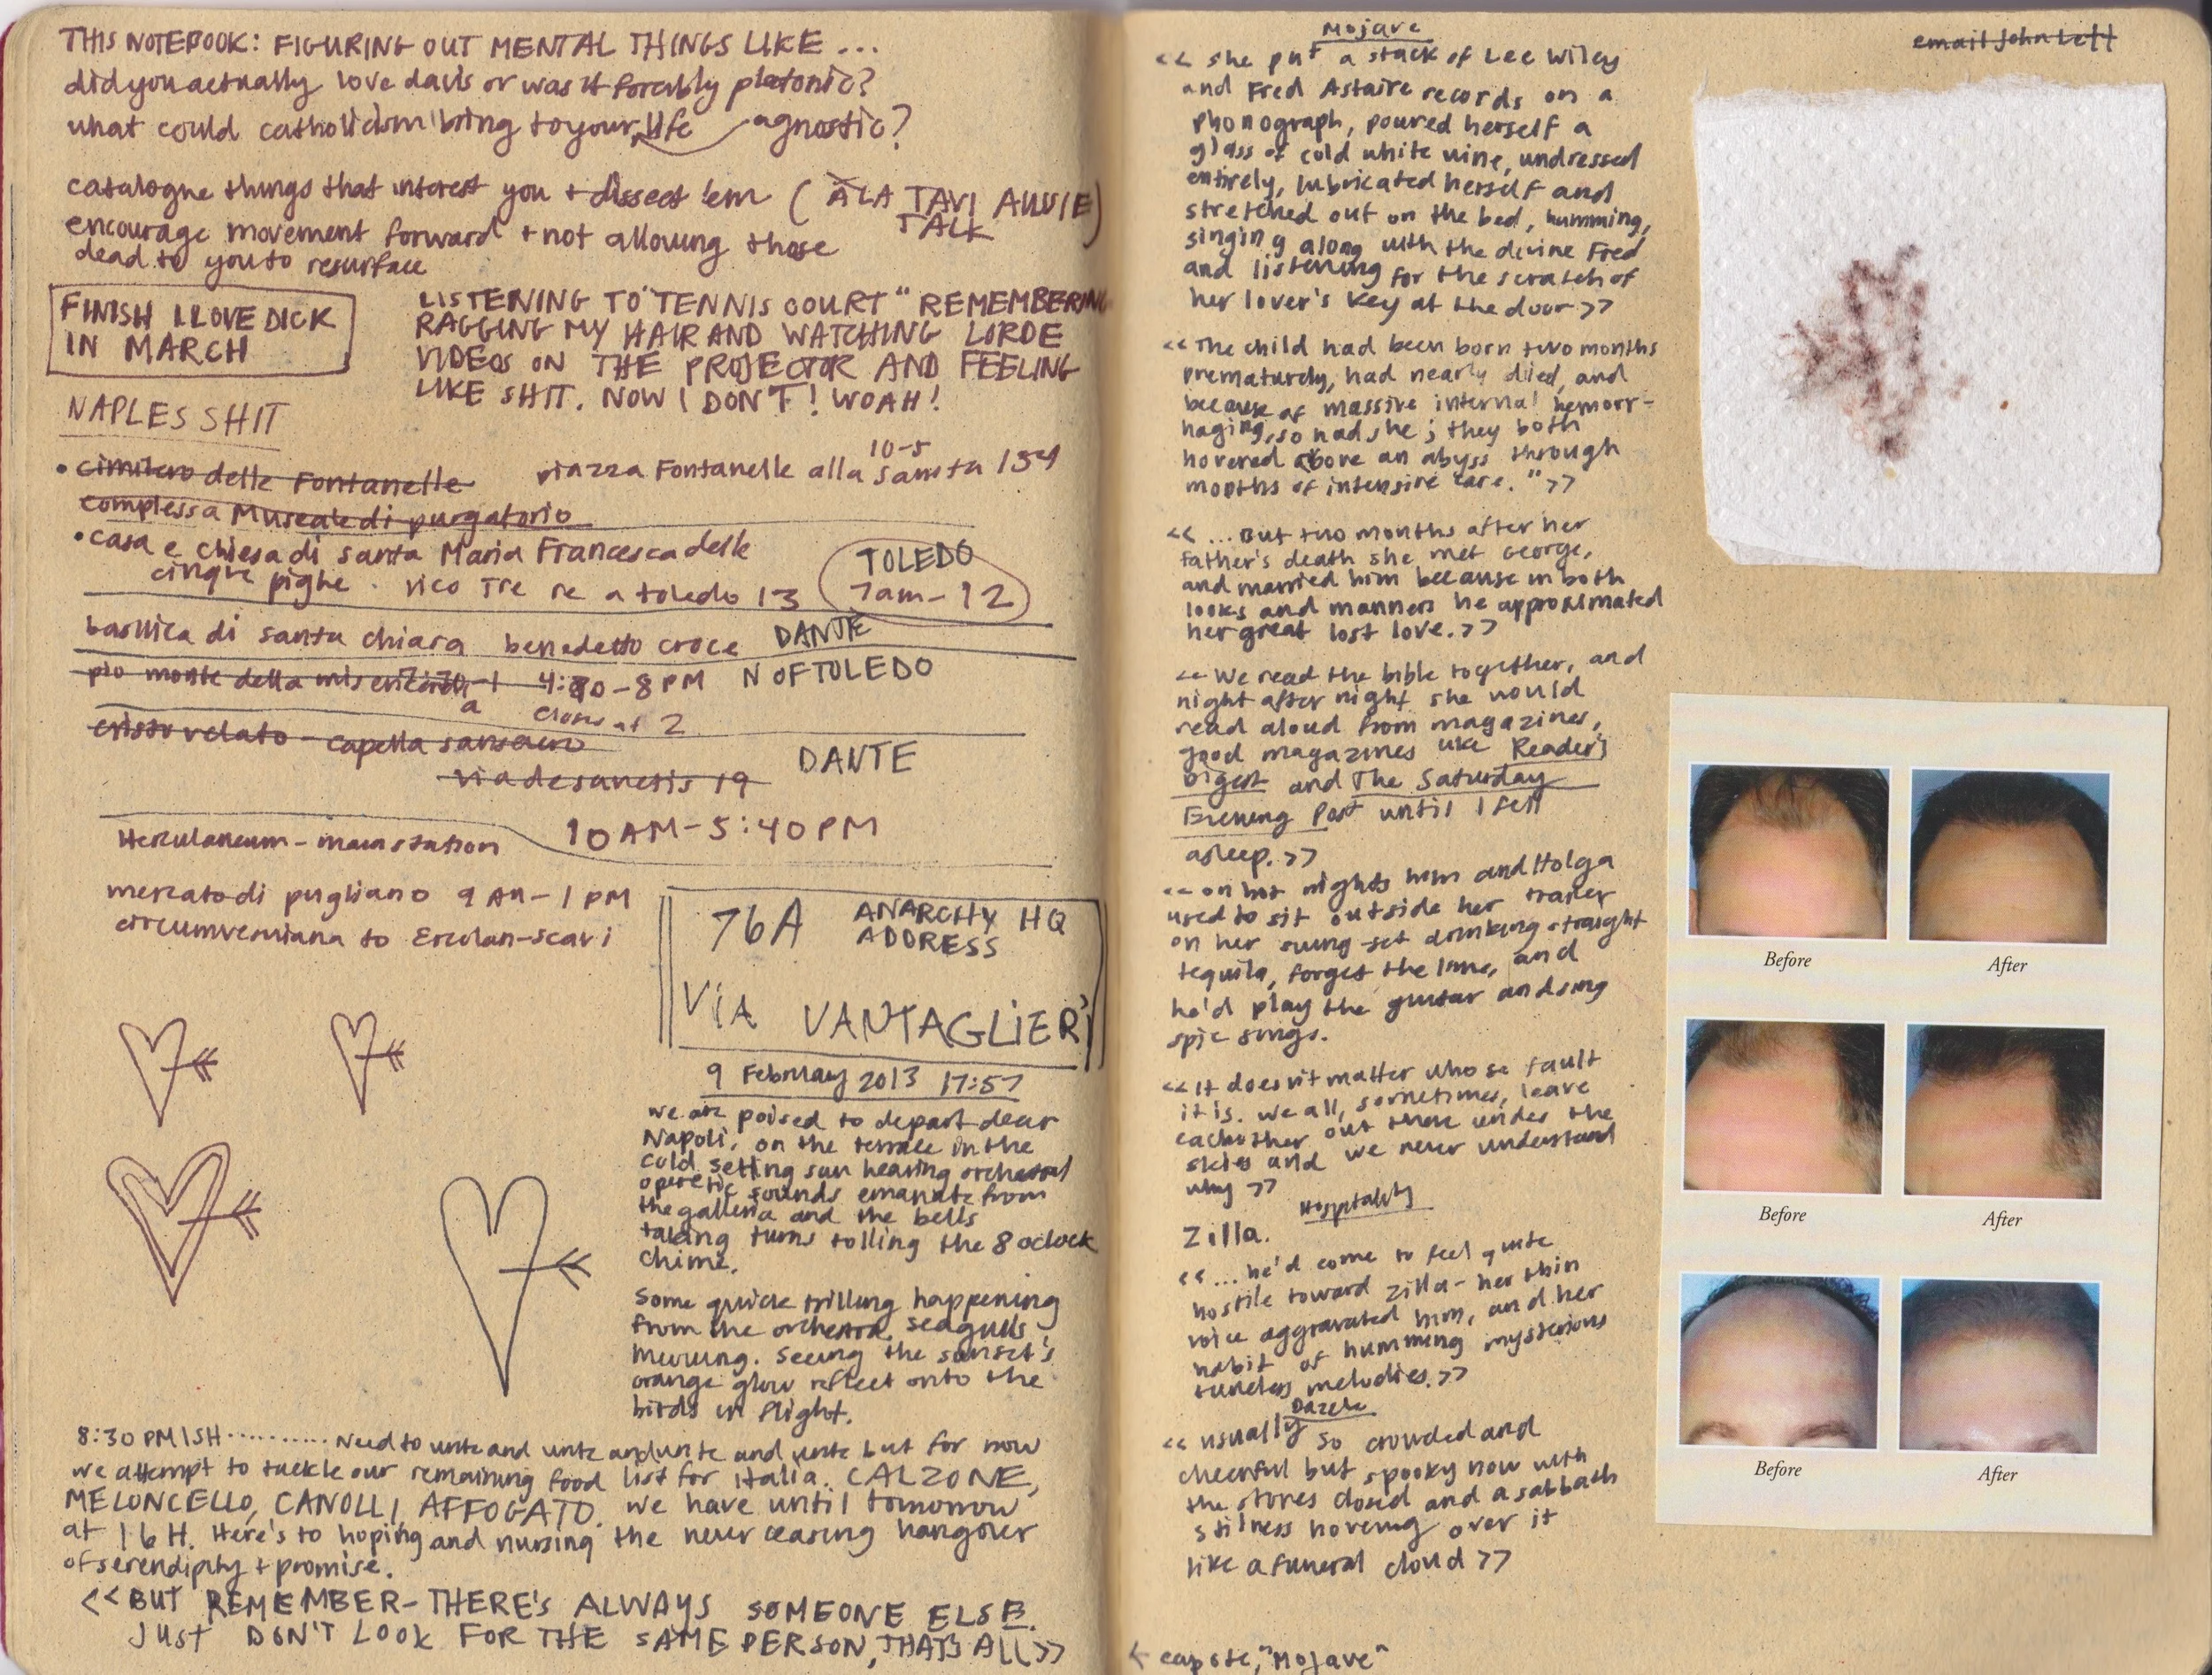 THIS NOTEBOOK: FIGURING OUT MENTAL THINGS LIKE ...
did you actually love davis or was it forcibly platonic?
what could catholicism bring to your life agnostic?
catalogue things that interest you + dissect 'em (À LA TAVI AUSSIE
TALK)
encourage movement forward + not allowing those
dead to you to resurface
FINISH I LOVE DICK
IN MARCH
LISTENING TO "TENNIS COURT" REMEMBERING
RAGGING MY HAIR AND WATCHING LORDE
VIDEOS ON THE PROJECTOR AND FEELING
LIKE SHIT. NOW I DON'T! WOAH!
NAPLES SHIT
• cimitero delle Fontanelle piazza Fontanelle alla Sanita 154
10-5
complessa Museale di purgatorio
• casa e chiesa di santa Maria Francesca delle
cinque pighe . vico Tre re a toledo 13
TOLEDO
7am-12
basilica di santa chiara benedetto croce DANTE
pio monte della misericordia 4:30-8PM N OF TOLEDO
closes at 2
cristo velato - capella sansevero
via de sanctis 19 DANTE
Herculaneum - main station 10AM-5:40PM
mercato di pugliano 9AM-1PM
circumvesuviana to Ercolan-scavi
76A ANARCHY HQ
ADDRESS
VIA VANTAGLIERI
9 February 2013 17:57
we are poised to depart dear
Napoli, on the terrace in the
cold setting sun hearing orchestral
operetic sounds emanate from
the galleria and the bells
taking turns tolling the 8 oclock
chime.
Some quick trilling happening
from the orchestra. seagulls
mewing. Seeing the sunset's
orange glow reflect onto the
birds in flight.
8:30 PM ISH .......... Need to write and write and write and write but for now
we attempt to tackle our remaining food list for italia. CALZONE,
MELONCELLO, CANOLLI, AFFOGATO. we have until tomorrow
at 16H. Here's to hoping and nursing the never ceasing hangover
of serendipity + promise.
<< BUT REMEMBER - THERE'S ALWAYS SOMEONE ELSE.
JUST DON'T LOOK FOR THE SAME PERSON, THAT'S ALL >>
Mojave
<< she put a stack of Lee Wiley
and Fred Astaire records on a
phonograph, poured herself a
glass of cold white wine, undressed
entirely, lubricated herself and
stretched out on the bed, humming,
singing along with the divine Fred
and listening for the scratch of
her lover's key at the door >>
<< The child had been born two months
prematurely, had nearly died, and
because of massive internal hemorr-
haging, so had she; they both
hovered above an abyss through
months of intensive care." >>
<< ... But two months after her
father's death she met George,
and married him because in both
looks and manners he approximated
her great lost love. >>
<< We read the bible together, and
night after night she would
read aloud from magazines,
good magazines like Reader's
Digest and The Saturday
Evening Post until I fell
asleep. >>
<< on hot nights him and Holga
used to sit outside her trailer
on her swing-set drinking straight
tequila, forget the lime, and
he'd play the guitar and sing
spic songs.
<< It doesn't matter whose fault
it is. we all, sometimes, leave
each other out there under the
skies and we never understand
why >>
Hospitality
Zilla.
<< ... he'd come to feel quite
hostile toward zilla - her thin
voice aggravated him, and her
habit of humming mysterious
tuneless melodies. >>
Dazzle
<< usually so crowded and
cheerful but spooky now with
the stores closed and a sabbath
stilness hovering over it
like a funeral cloud >>
← capote, "Mojave"
email John Left
Before
After
Before
After
Before
After